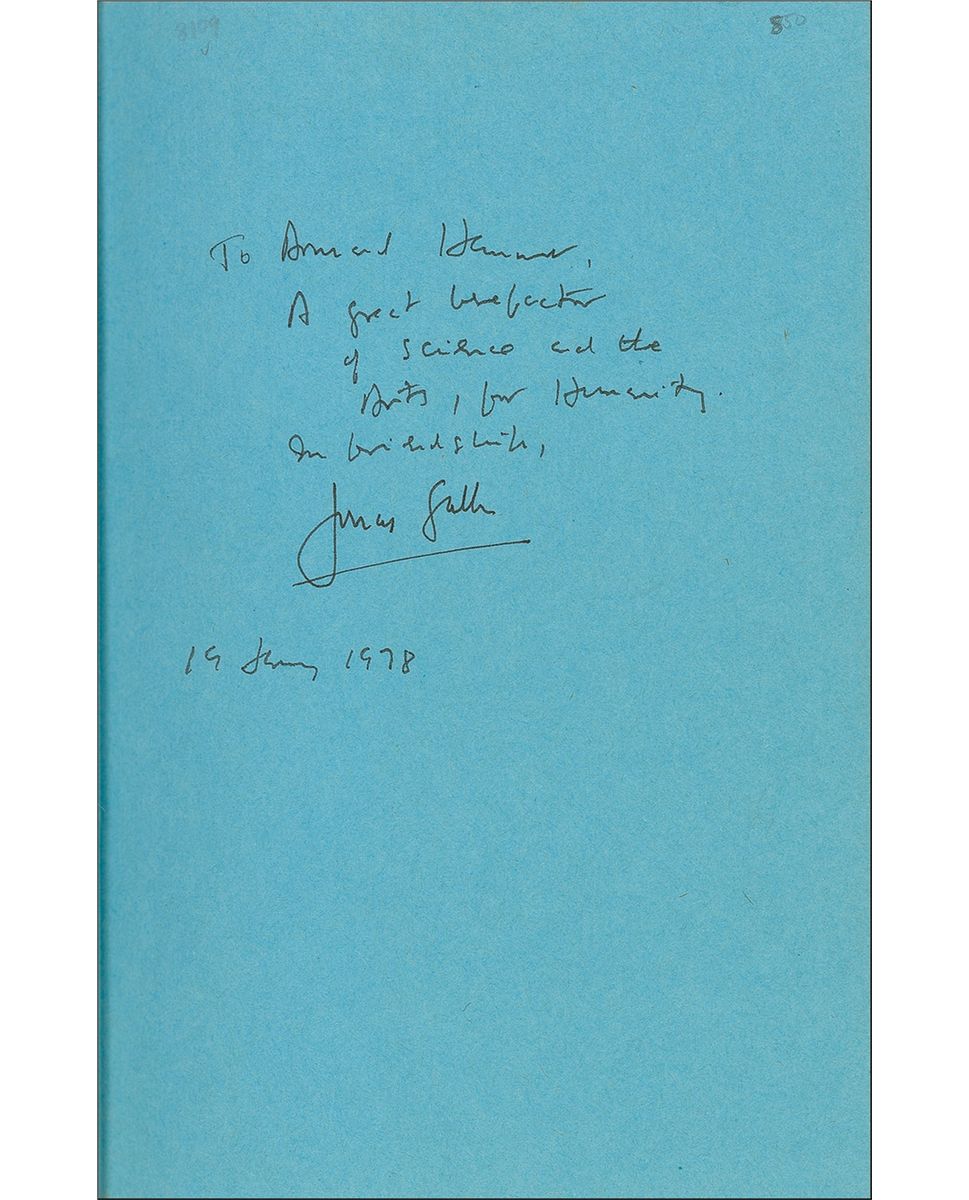 8109
850
To Armand Hammer,
A great benefactor
of science and the
Arts, for Humanity.
In friendship,
Jonas Salk
19 January 1978